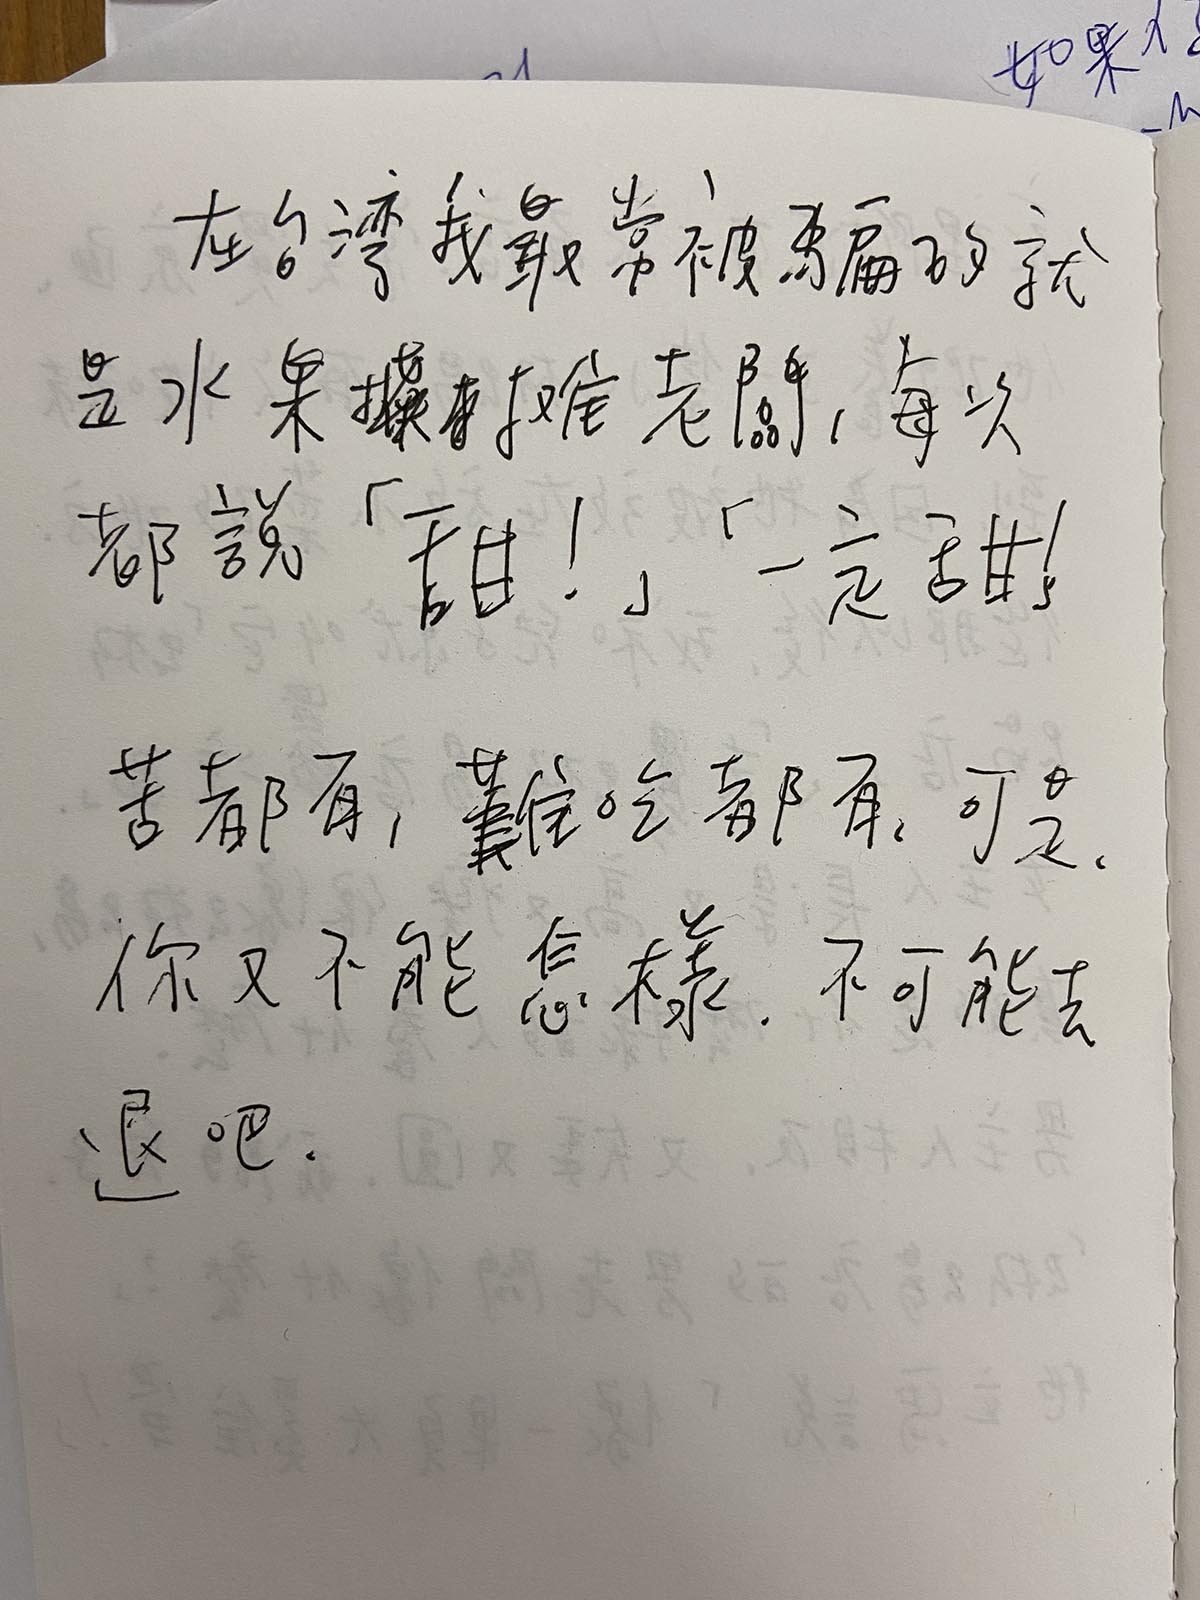 如果
在台灣我最常被騙的就
是水果攤老闆,每次
都說「甜!」「一定甜!
苦都有,難吃都有.可是.
你又不能怎樣.不可能去
退吧.